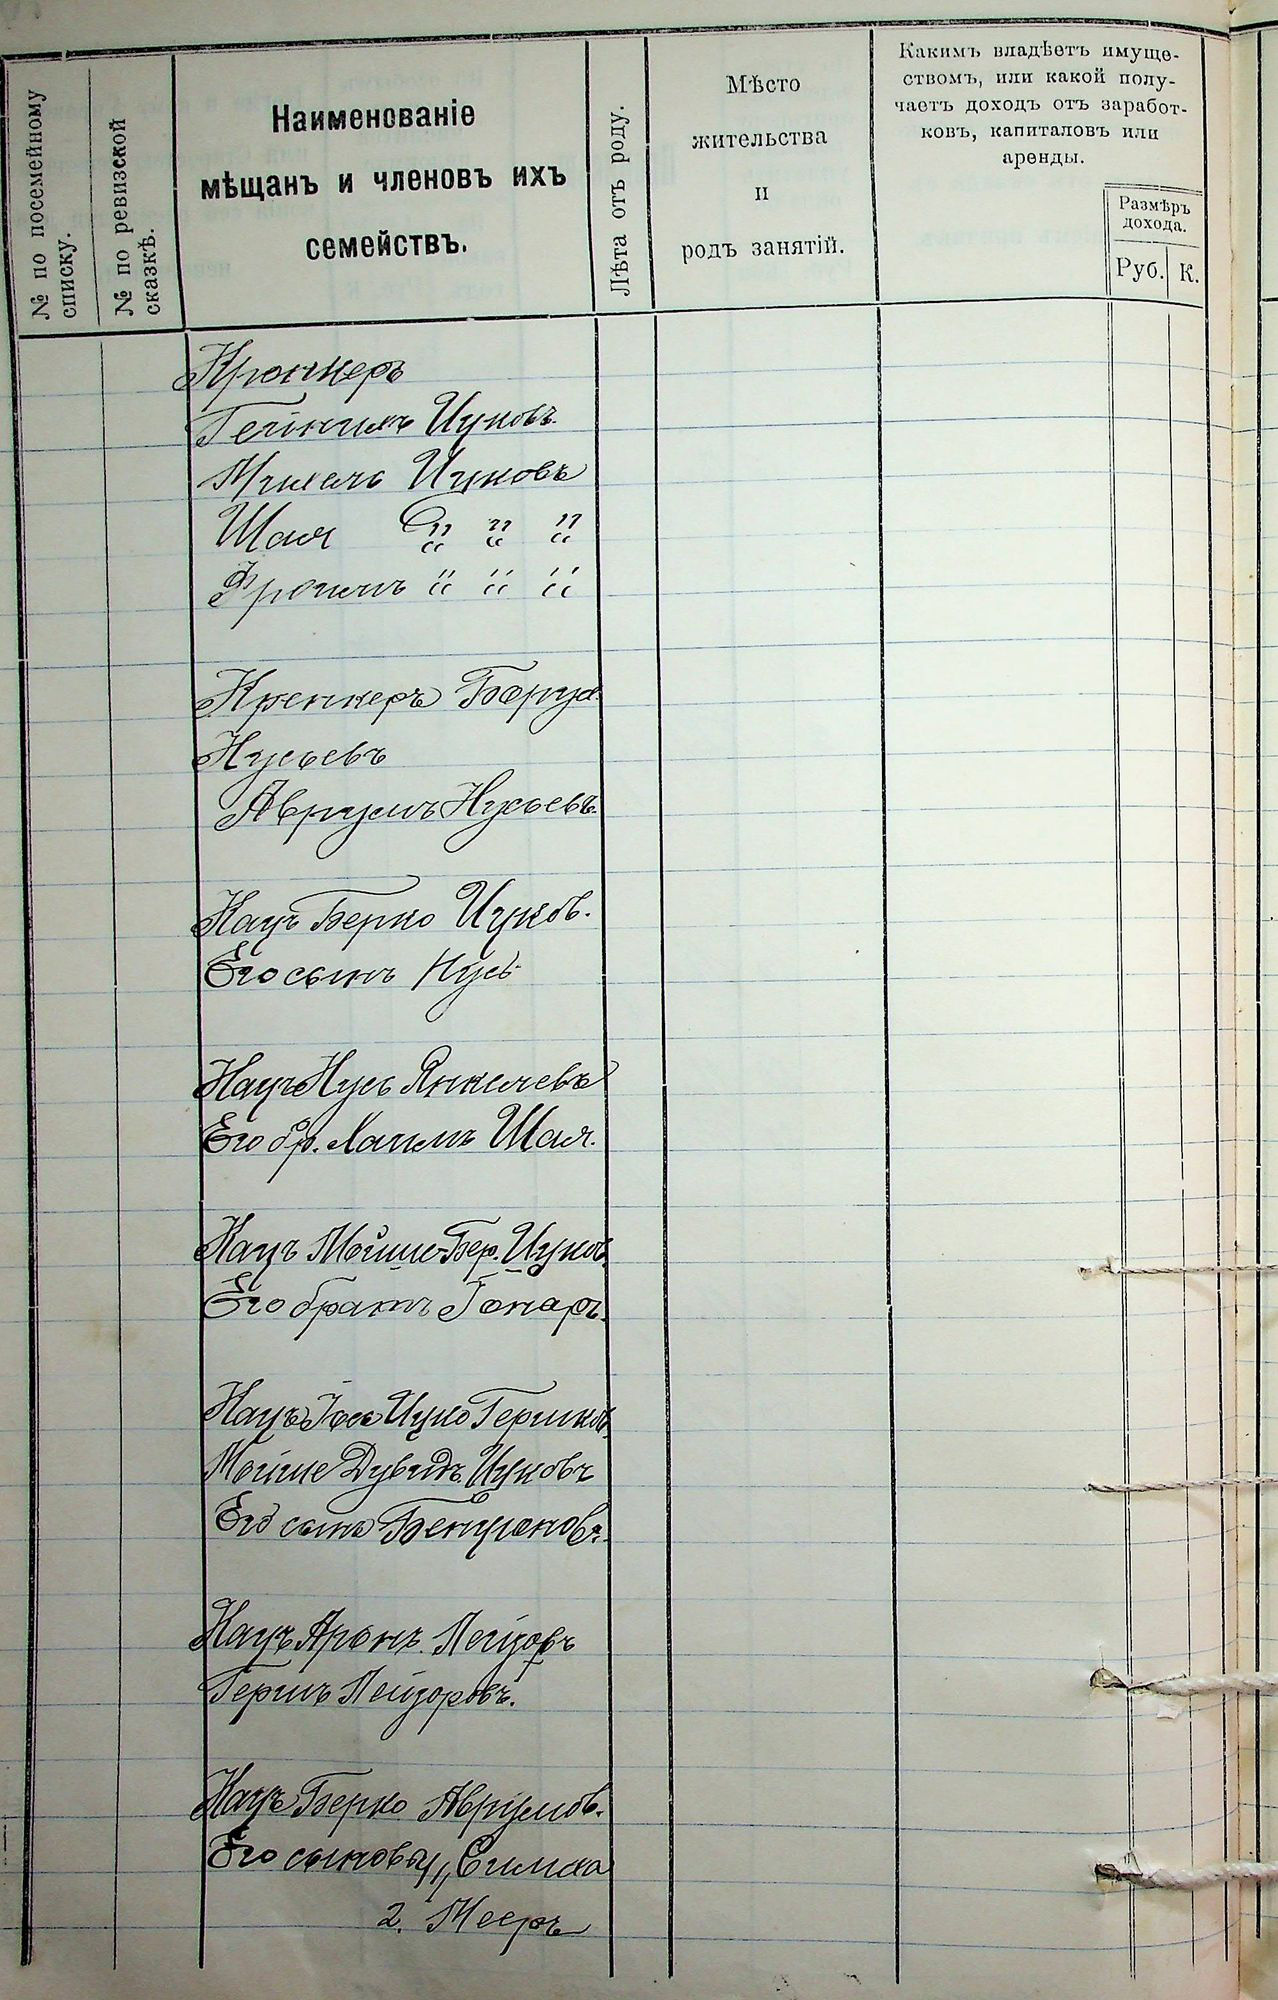 № по посемейному
списку.
№ по ревизской
сказкѣ.
Наименованіе
мѣщанъ и членовъ ихъ
семействъ.
Лѣта отъ роду.
Мѣсто
жительства
и
родъ занятій.
Какимъ владѣетъ имуще-
ствомъ, или какой полу-
чаетъ доходъ отъ заработ-
ковъ, капиталовъ или
аренды.
Размѣръ
дохода.
Руб. К.
Ицковъ.
Михель Ицковъ
Шая " " "
Фроимъ " " "
Борух
Нусьевъ
Аврумъ Нусьевъ.
Кацъ Берко Ицков.
Его сынъ Нусь
Кацъ Нусь Янкелевъ
Его бр. Хаимъ Шая.
Кацъ Мойше-Бер. Ицков.
Его братъ
Кацъ Іос Ицко Гершков.
Мойше Дувидъ Ицковъ
Его сынъ
Кацъ Аронъ Лейзоръ
Гершъ Лейзоровъ.
Кацъ Берко Аврумов.
Его сыновья, Симха
2. Мееръ